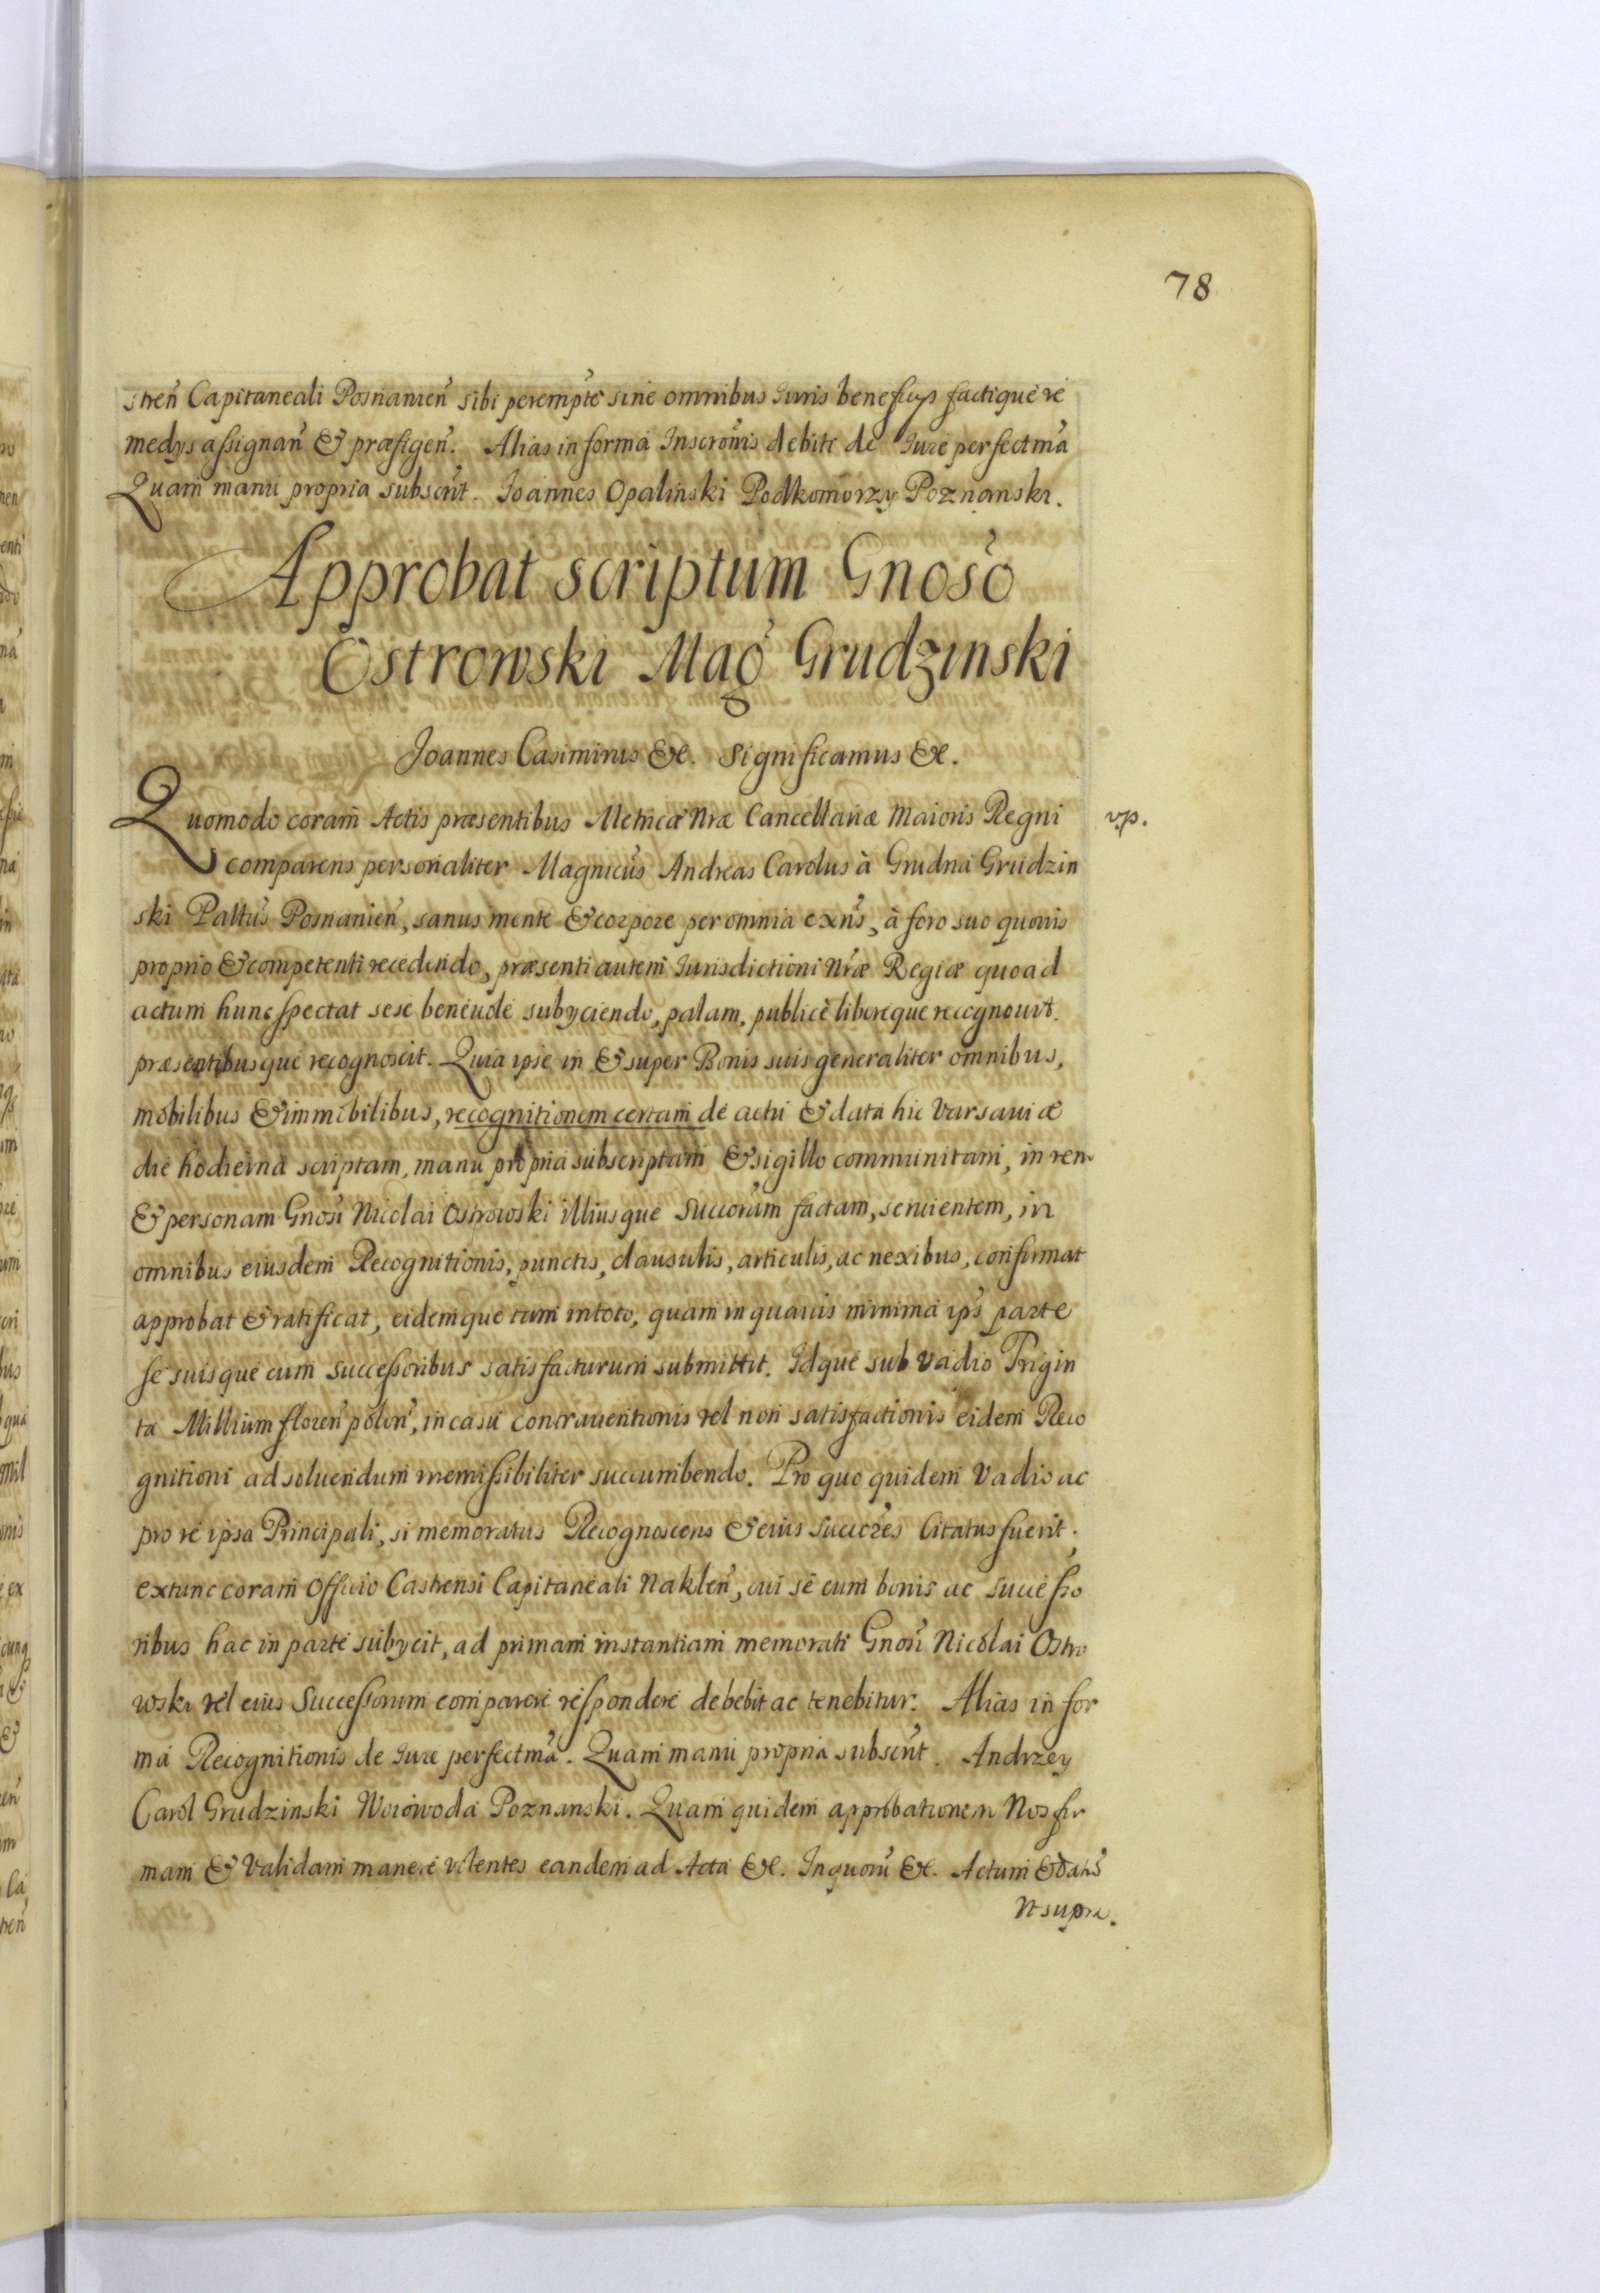 78
stren̄ Capitaneali Posnanien̄ sibi perempte sine omnibus Iuris beneficys factique re
medys assignan̄ & præfigen̄. Alias in forma Inscronis debiti de Iure perfectma
Quam manu propria subscrit. Ioannes Opalinski Podkomorzy Poznanski.
Approbat scriptum Gnoso
Ostrowski Mag Grudzinski
Joannes Casimirus &c. Significamus &c.
Quomodo coram Actis præsentibus Metricæ Nræ Cancellariæ Maioris Regni
vp.
comparens personaliter Magnicus Andreas Carolus à Grudna Grudzin
ski Paltus Posnanien̄, sanus mente & corpore per omnia exns, à foro suo quouis
proprio & competenti recedendo, præsenti autem Iurisdictioni Nræ Regiæ quoad
actum hunc spectat sese beneuole subyciendo, palam, publicè libereque recognouit.
præsentibusque recognoscit. Quia ipse in & super Bonis suis generaliter omnibus,
mobilibus & immobilibus, recognitionem certam de actu & data hic Varsauiæ
die hodierna scriptam, manu propria subscriptam & sigillo communitam, in rem
& personam Gnosi Nicolai Ostrowski illiusque Succorum factam, seruientem, in
omnibus eiusdem Recognitionis, punctis, clausulis, articulis, ac nexibus, confirmat
approbat & ratificat, eidemque tam in toto, quam in quauis minima ips parte
se suisque cum successoribus satisfacturum submittit. Idque sub vadio Trigin
ta Millium floren̄ polon̄, in casu contrauentionis vel non satisfactionis eidem Reco
gnitioni ad soluendum irremissibiliter succumbendo. Pro quo quidem Vadio ac
pro re ipsa Principali, si memoratus Recognoscens & eius Succres Citatus fuerit,
extunc coram Officio Castrensi Capitaneali Naklen̄, cui se cum bonis ac successo
ribus hac in parte subycit, ad primam instantiam memorati Gnosi Nicolai Ostro
wski vel eius Successorum comparere respondere debebit ac tenebitur. Alias in for
ma Recognitionis de Iure perfectma. Quam manu propria subscrit. Andrzey
Carol Grudzinski Woiowoda Poznanski. Quam quidem approbationem Nos fir
mam & Validam manere volentes eandem ad Acta &c. In quoru &c. Actum & datu
Vt supra.